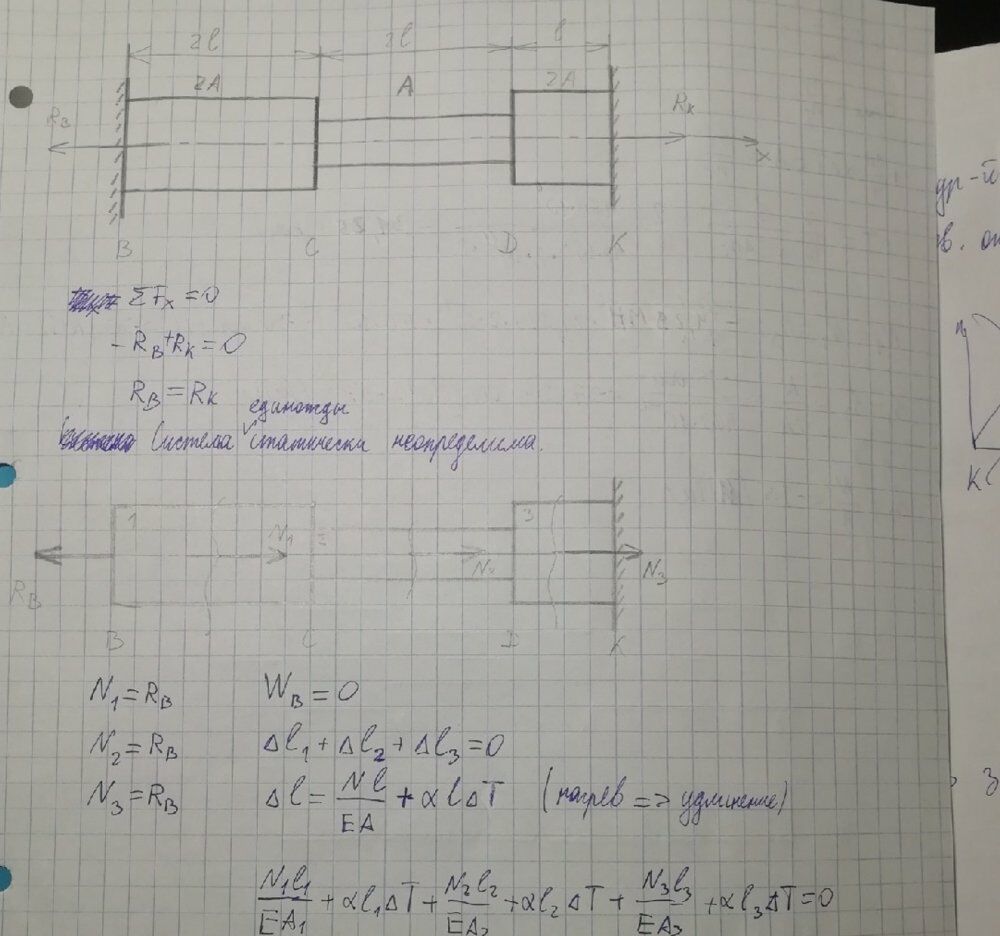 2l 2l l
2A A 2A
R_B R_K
x
B C D K
ΣF_x = 0
- R_B + R_K = 0
R_B = R_K
единожды
Система статически неопределима.
1 N_1 2 N_2 3 N_3
R_B
B C D K
N_1 = R_B W_B = 0
N_2 = R_B Δl_1 + Δl_2 + Δl_3 = 0
N_3 = R_B Δl = Nl/EA + αlΔT (нагрев => удлинение)
N_1l_1/EA_1 + αl_1ΔT + N_2l_2/EA_2 + αl_2ΔT + N_3l_3/EA_3 + αl_3ΔT = 0
ур-й
K
3